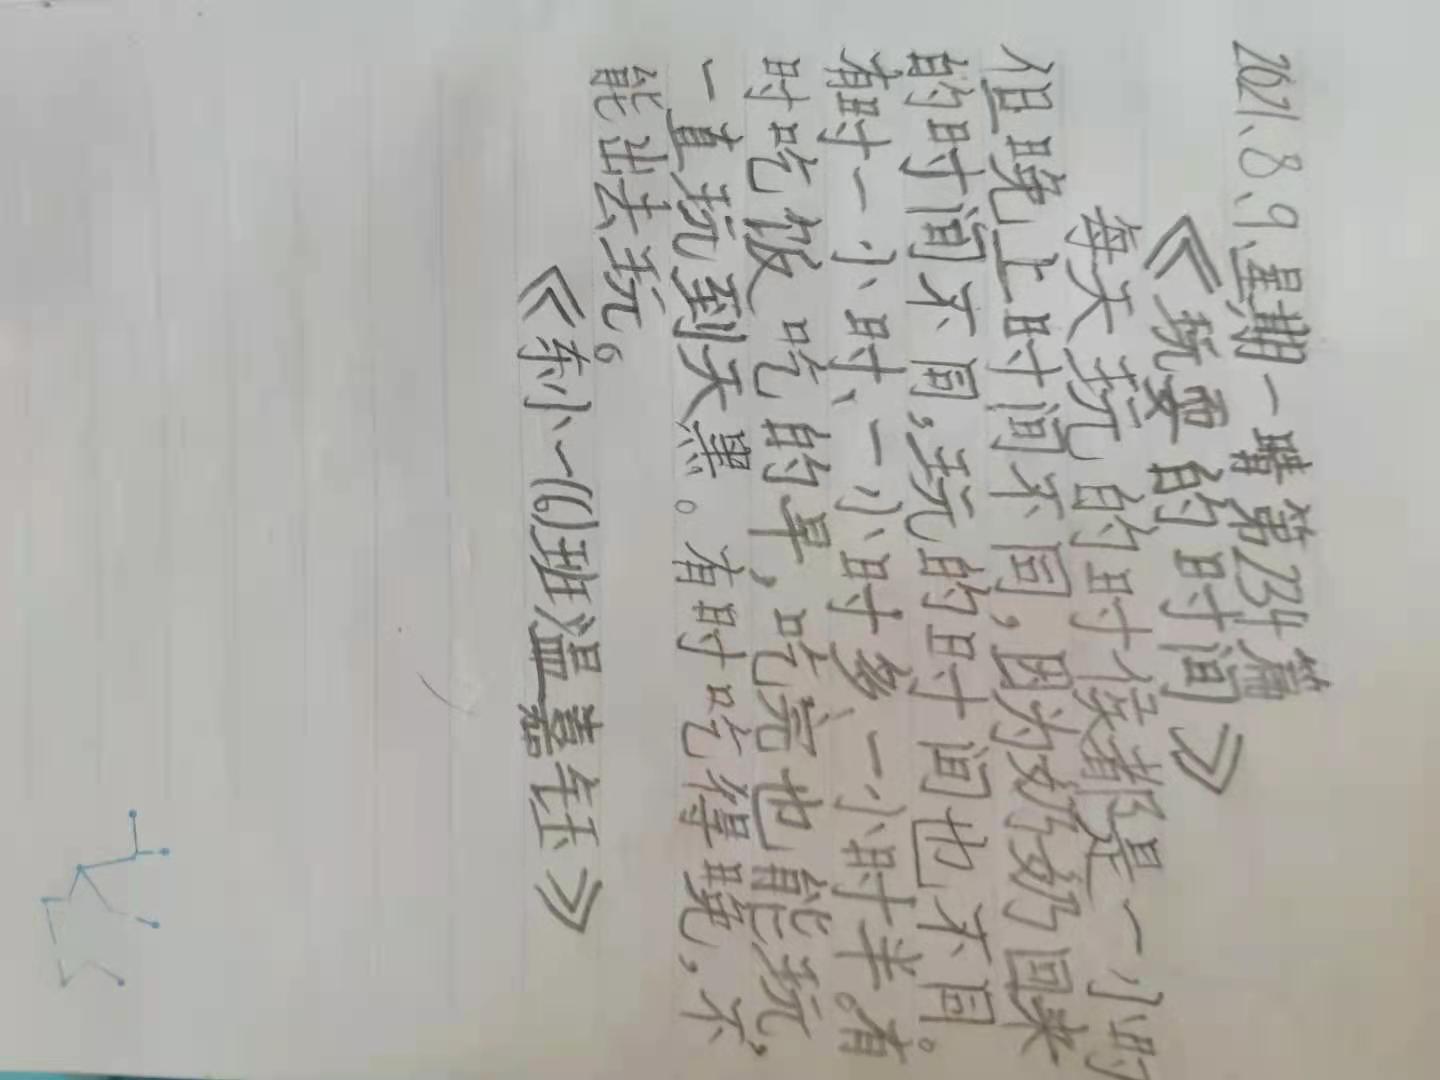 2021、8、9、星期一晴第234篇
《玩耍的时间》
每天玩的时候都是一小时
但晚上时间不同，因为奶奶回来
的时间不同，玩的时间也不同。
有时一小时、一小时多、一小时半。有
时吃饭吃的早，吃完也能玩，
一直玩到天黑。有时吃得晚，不
能出去玩。
《东小一(6)班温嘉钰》